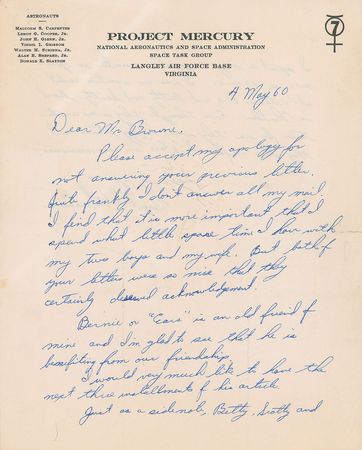 ASTRONAUTS
MALCOLM S. CARPENTER
LEROY G. COOPER, JR.
JOHN H. GLENN, JR.
VIRGIL I. GRISSOM
WALTER M. SCHIRRA, JR.
ALAN B. SHEPARD, JR.
DONALD K. SLAYTON
PROJECT MERCURY
NATIONAL AERONAUTICS AND SPACE ADMINISTRATION
SPACE TASK GROUP
LANGLEY AIR FORCE BASE
VIRGINIA
7
4 May 60
Dear Mr Browne,
Please accept my apology for
not answering your previous letter.
Quite frankly I don't answer all my mail.
I find that it is more important that I
spend what little spare time I have with
my two boys and my wife. But both of
your letters were so nice that they
certainly deserved acknowledgement.
Bernie or "Ears" is an old friend of
mine and I'm glad to see that he is
benefiting from our friendship.
I would very much like to have the
next three installments of his article
Just as a sidenote, Betty, Scotty and